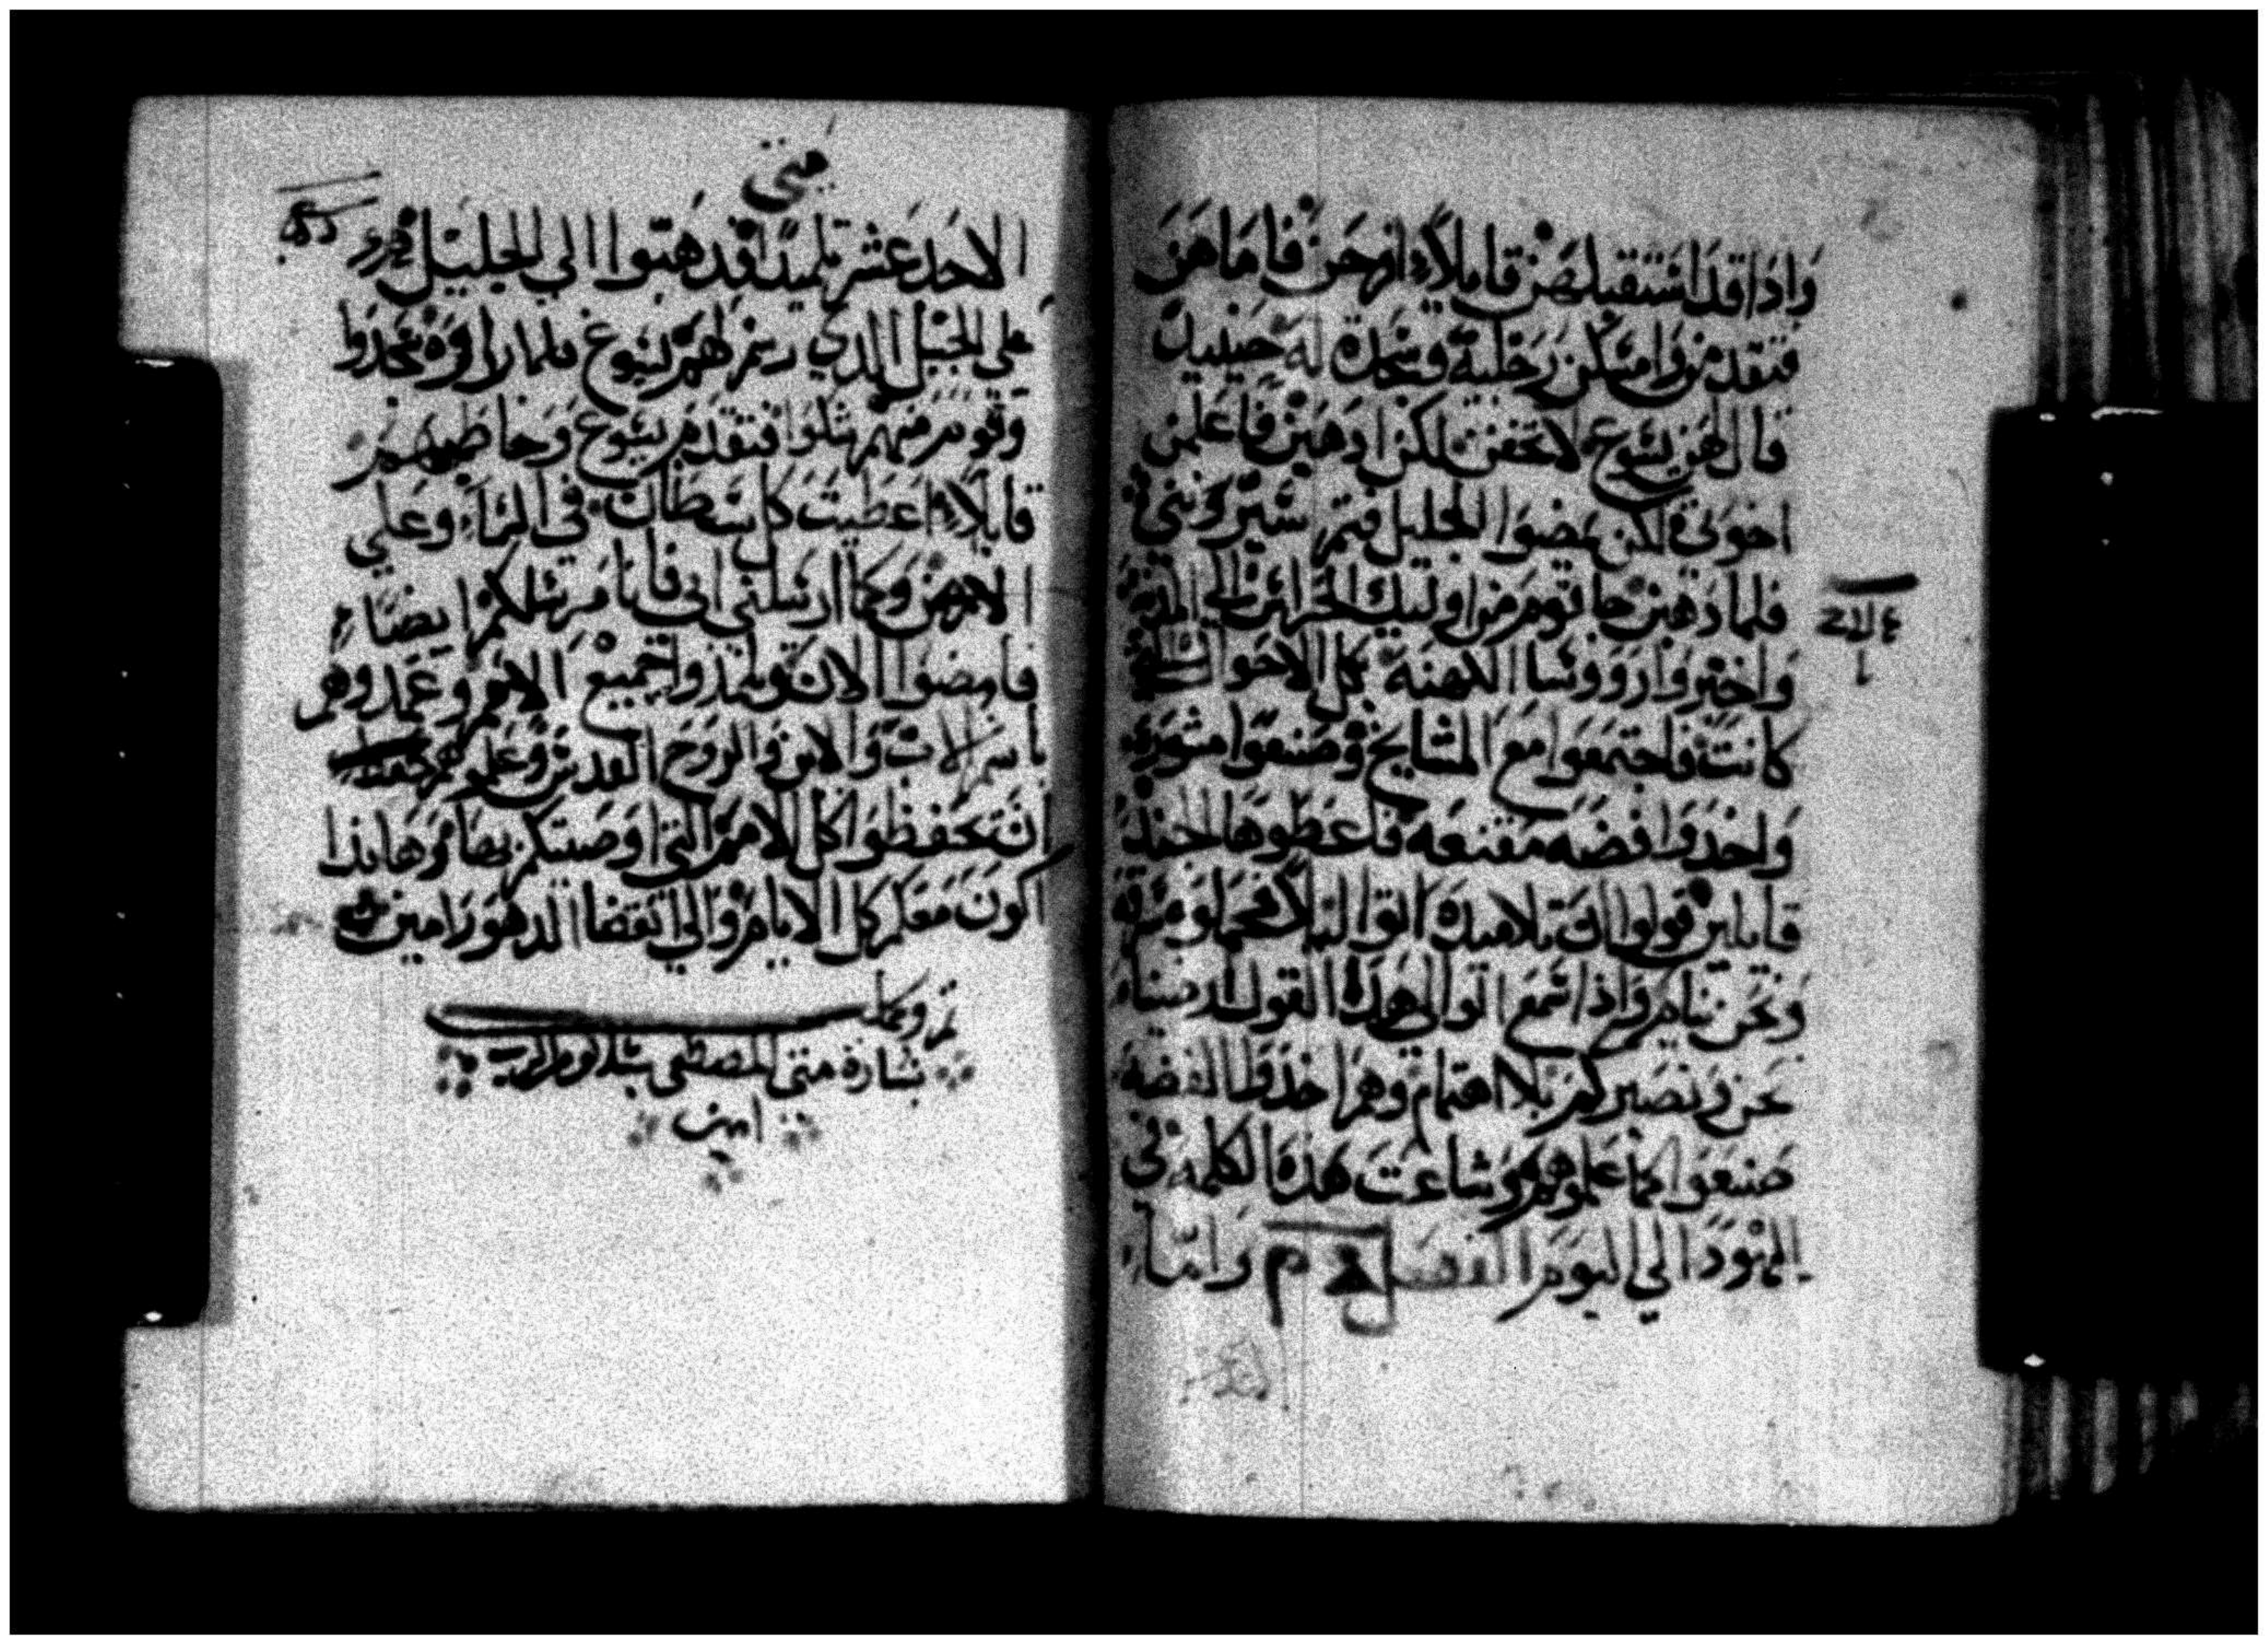 واذا قد استقبلهن قايلاً افرحن فاما هن
فتقدمن وامسكن رجليه وسجدن له حينيد
قال لهن يسوع لا تخفن لكن ادهبن فاعلمن
اخوتي لكن يمضوا الجليل فتم
فلما دهبن جا قوم من اوليك الحراس الي المدينة
واخبروا رووسا الكهنه بكل الاحوال التي
كانت فاجتمعوا مع المشايخ وصنعوا مشورة
واخدوا فضه مقنعه فاعطوها الجند
قايلين قولوا ان تلاميده اتوا ليلاً
ونحن نيام واذا سمع الوالي هدا القول
نحن ونصيركم بلا اهتمام وهم اخدوا الفضه
صنعوا كما علموهم وشاعت هذه الكلمه في
اليهود الي اليوم الفصل واما
متى
الاحد عشر تلميدا فدهبوا الي الجليل
علي الجبل الدي رسم لهم يسوع فلما راوه سجدوا
وقوم منهم شكوا فتقدم يسوع وخاطبهم
قايلاً اعطيت كل سلطان في السماء وعلي
الارض وكما ارسلني ابي فانا مرسلكم ايضاء
فامضوا الان وتلمدوا جميع الامم وعمدوهم
باسم الاب والابن والروح القدس وعلموهم
ان تحفظوا كل الامر التي اوصيتكم بها مرها بدا
اكون معكم كل الايام والي انقضا الدهور امين
تم وكمل
بشارة متي المصطفي بسلام من الرب
امين